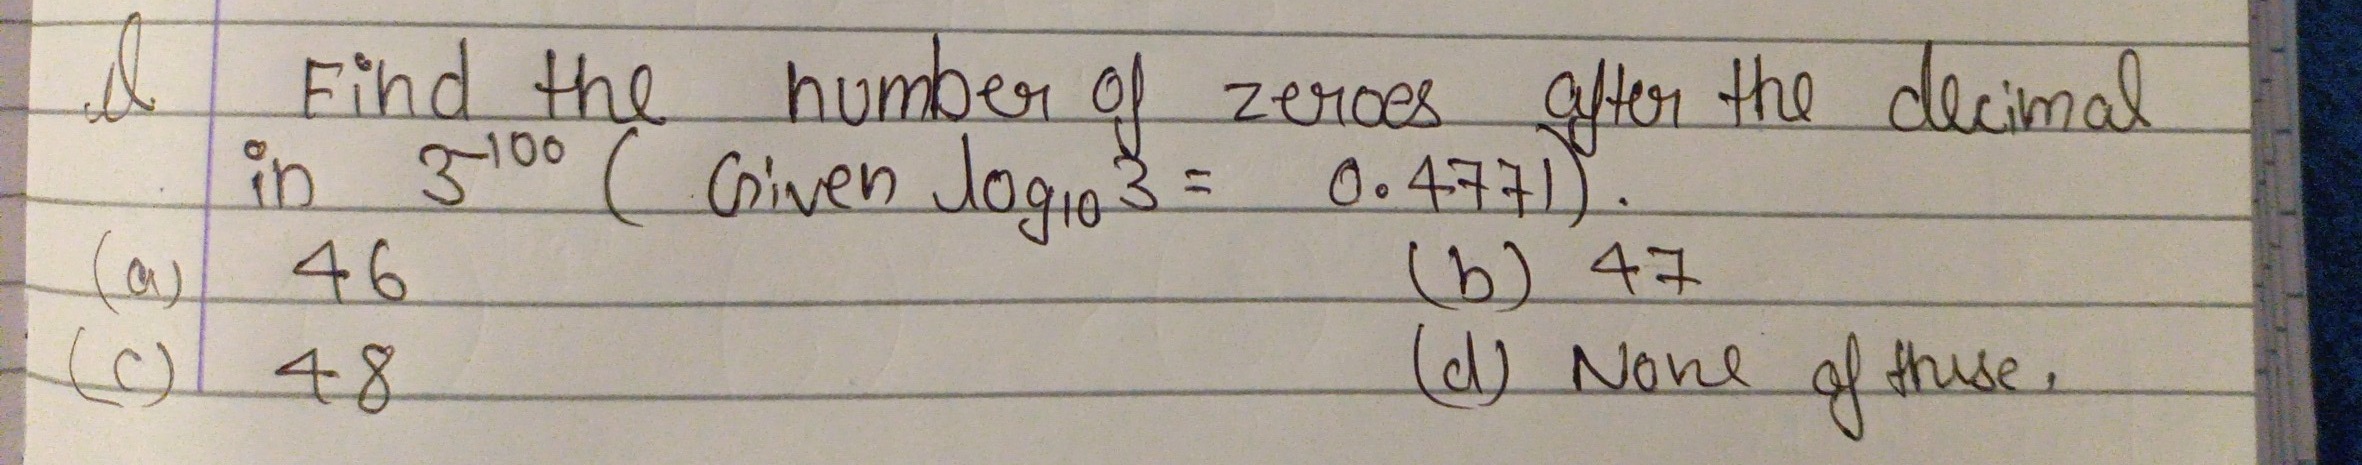 Q Find the number of zeroes after the decimal
in 3⁻¹⁰⁰ ( Given log₁₀3 = 0.4771).
(a) 46 (b) 47
(c) 48 (d) None of these.